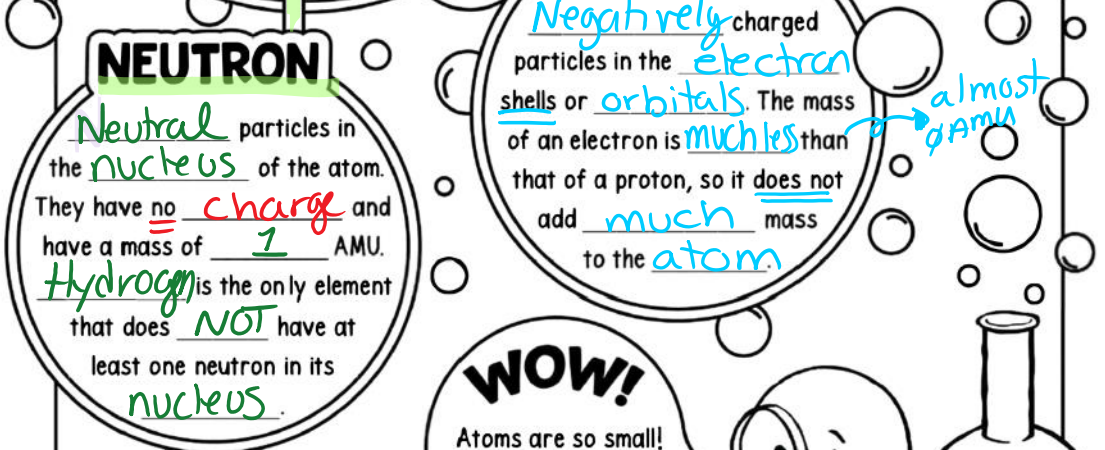 NEUTRON
Neutral particles in
the nucleus of the atom.
They have no charge and
have a mass of 1 AMU.
Hydrogen is the only element
that does NOT have at
least one neutron in its
nucleus.
Negatively charged
particles in the electron
shells or orbitals. The mass
of an electron is much less than
that of a proton, so it does not
add much mass
to the atom.
almost
0 AMU
WOW!
Atoms are so small!